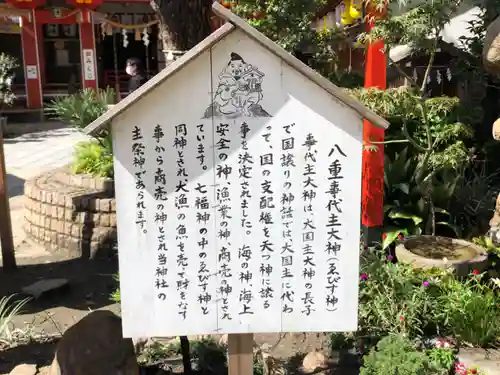 八重事代主大神（ゑびす神）
事代主大神は、大国主大神の長子
で国譲りの神話では大国主に代わ
って、国の支配権を天つ神に譲る
事を決定されました。海の神、海上
安全の神、漁業の神、商売の神とされ
ています。七福神の中のゑびす神と
同神とされ大漁の魚を売て財をなす
事から商売の神とされ当神社の
主祭神であられます。